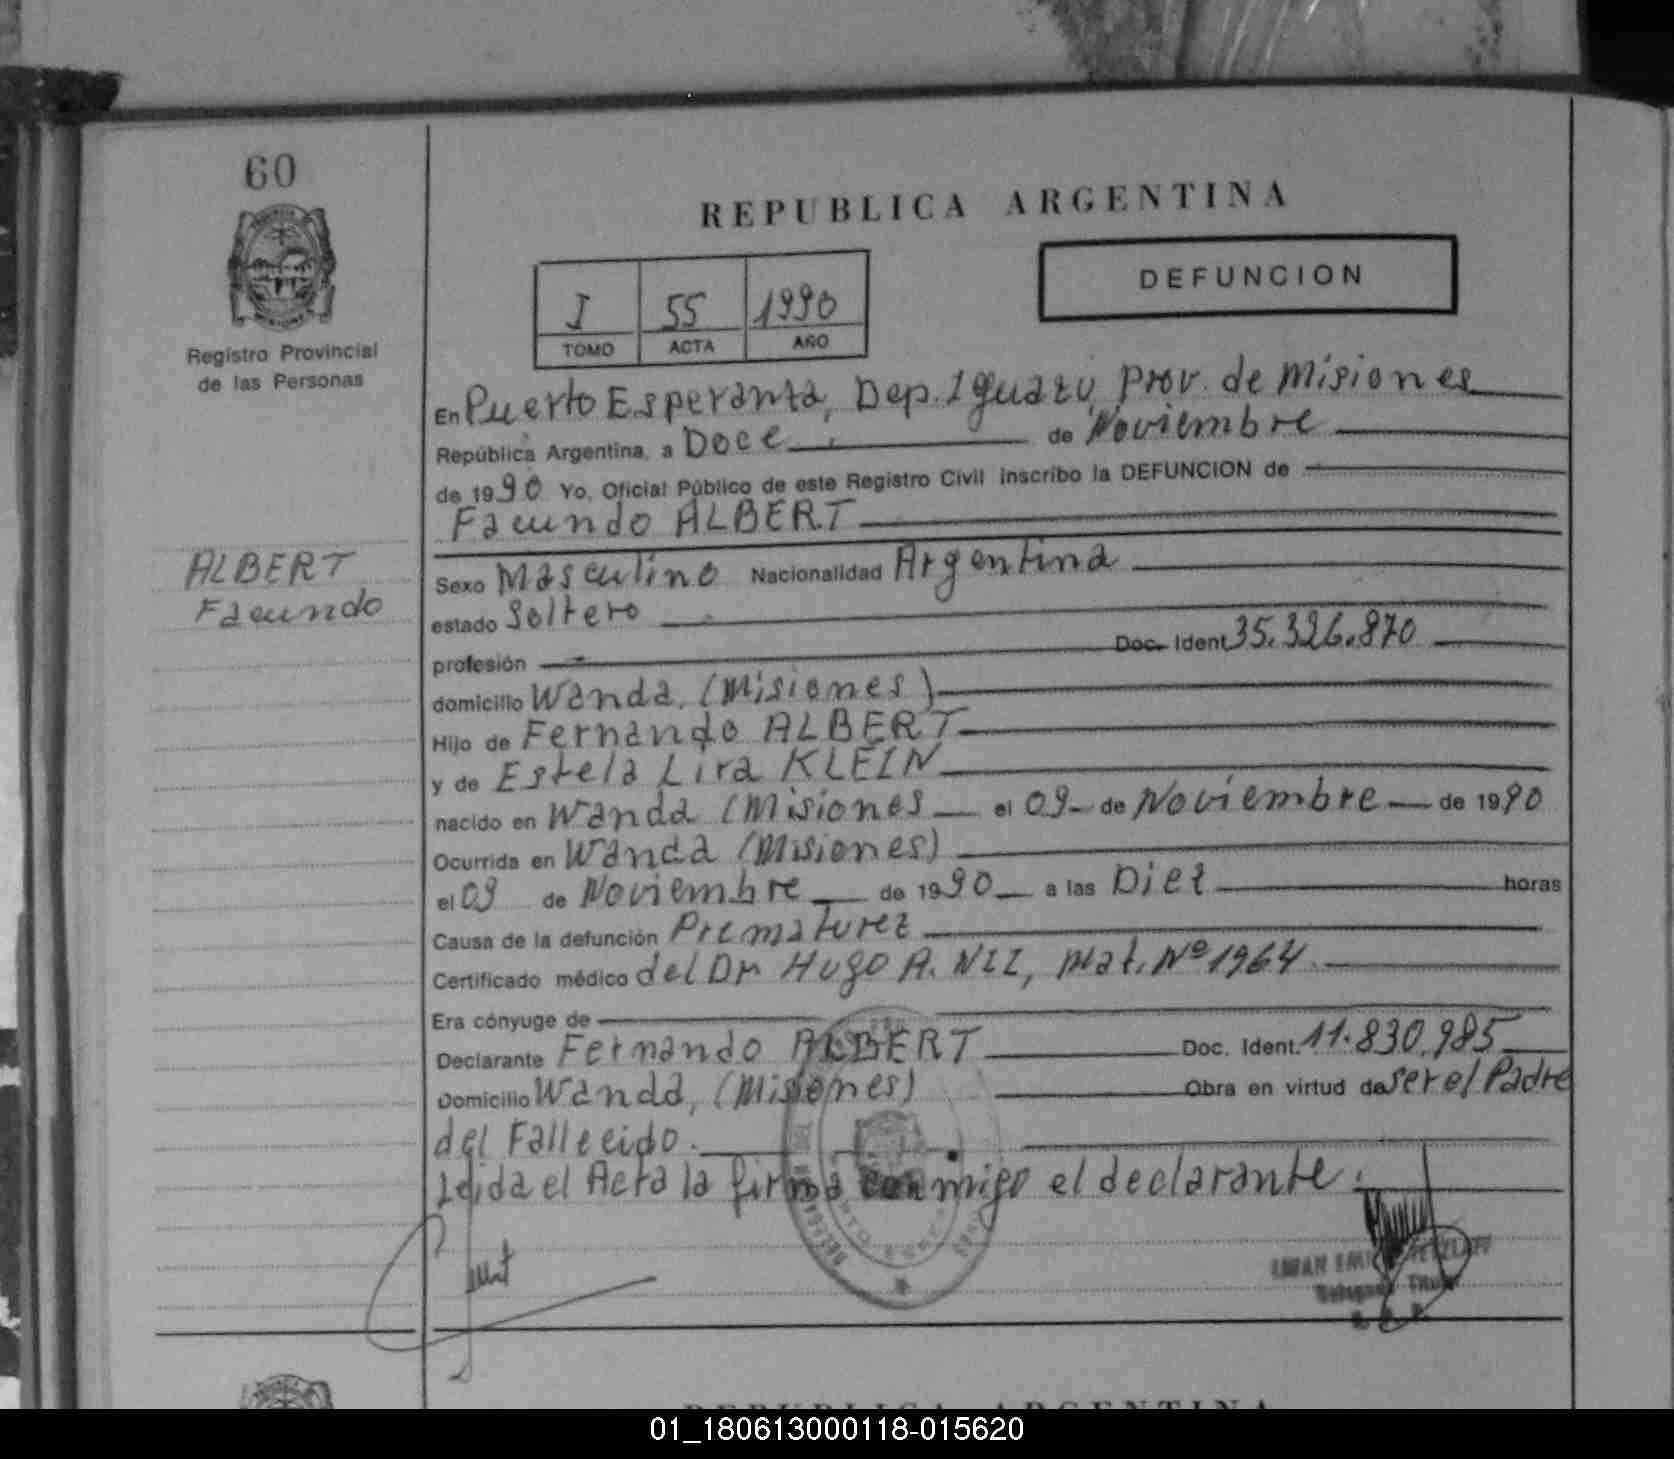 60
Registro Provincial
de las Personas
REPUBLICA ARGENTINA
DEFUNCION
I 55 1990
TOMO ACTA AÑO
En Puerto Esperanza, Dep. Iguazú, Prov. de Misiones
República Argentina, a Doce de Noviembre
de 1990 Yo, Oficial Público de este Registro Civil inscribo la DEFUNCION de
Facundo ALBERT
ALBERT
Facundo
Sexo Masculino Nacionalidad Argentina
estado Soltero
profesión Doc. Ident 35.326.870
domicilio Wanda, (Misiones)
Hijo de Fernando ALBERT
y de Estela Lira KLEIN
nacido en Wanda (Misiones el 09 de Noviembre de 1990
Ocurrida en Wanda (Misiones)
el 09 de Noviembre de 1990 a las Diez horas
Causa de la defunción Prematurez
Certificado médico del Dr Hugo A. , Mat. Nº 1964
Era cónyuge de
Declarante Fernando ALBERT Doc. Ident. 11.830.985
Domicilio Wanda, (Misiones) Obra en virtud de ser el Padre
del Fallecido.
Leida el Acta la firma conmigo el declarante.
REPUBLICA ARGENTINA
01_180613000118-015620